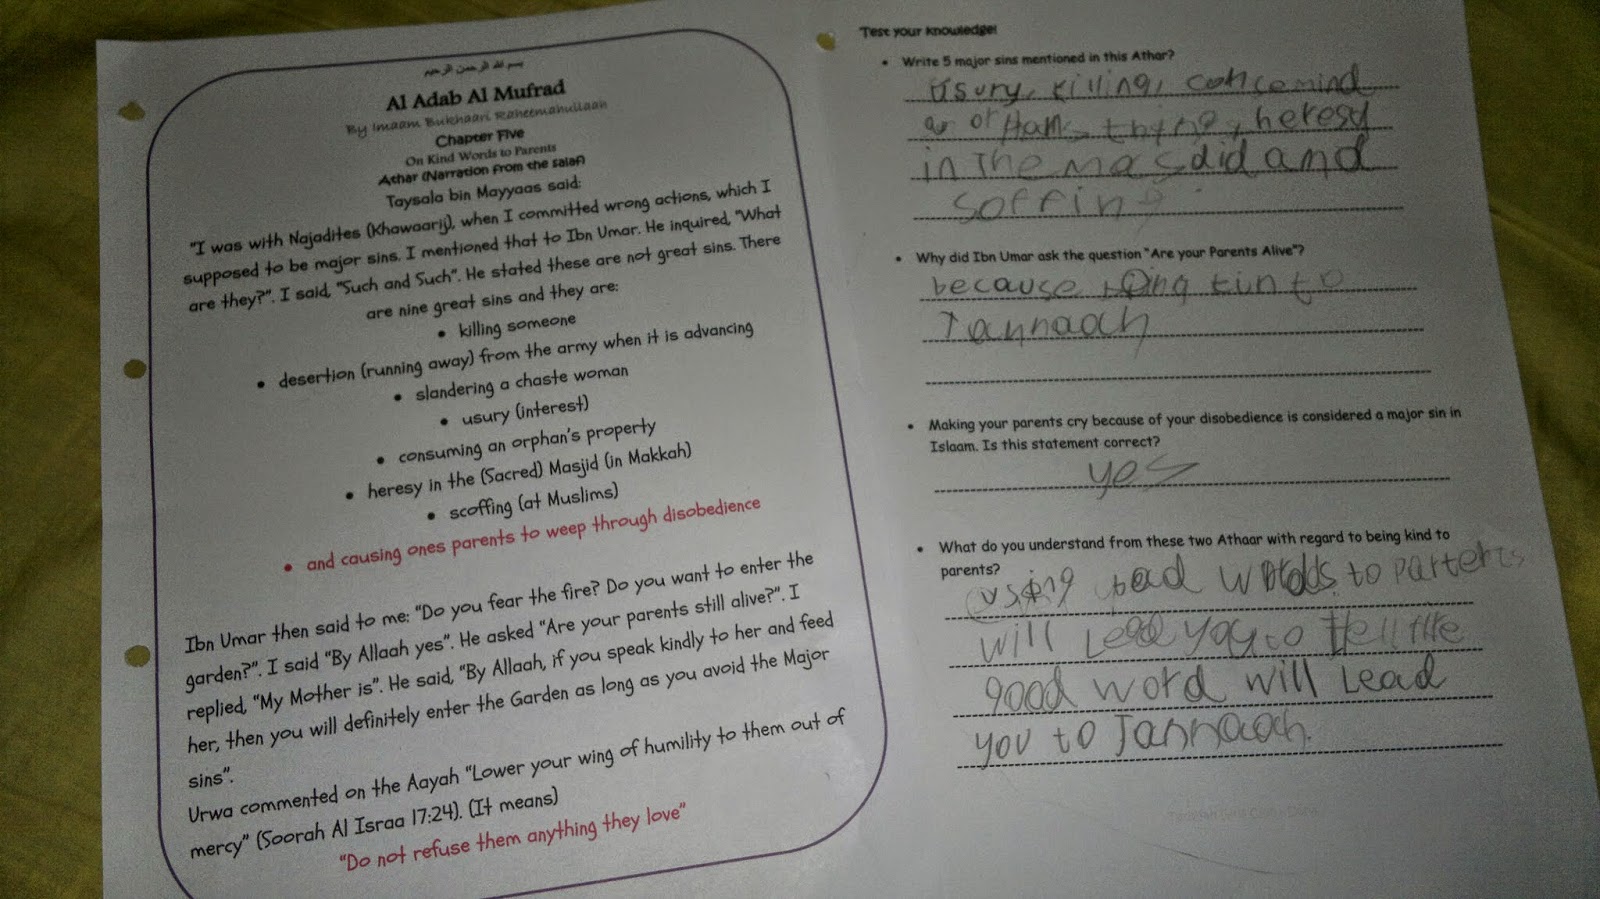 بسم الله الرحمن الرحيم
Al Adab Al Mufrad
By Imaam Bukhaari Raheemahullaah
Chapter Five
On Kind Words to Parents
Athar (Narration from the Salaf)
Taysala bin Mayyaas said:
"I was with Najadites (Khawaarij), when I committed wrong actions, which I
supposed to be major sins. I mentioned that to Ibn Umar. He inquired, "What
are they?". I said, "Such and Such". He stated these are not great sins. There
are nine great sins and they are:
• killing someone
• desertion (running away) from the army when it is advancing
• slandering a chaste woman
• usury (interest)
• consuming an orphan's property
• heresy in the (Sacred) Masjid (in Makkah)
• scoffing (at Muslims)
• and causing ones parents to weep through disobedience
Ibn Umar then said to me: "Do you fear the fire? Do you want to enter the
garden?". I said "By Allaah yes". He asked "Are your parents still alive?". I
replied, "My Mother is". He said, "By Allaah, if you speak kindly to her and feed
her, then you will definitely enter the Garden as long as you avoid the Major
sins".
Urwa commented on the Aayah "Lower your wing of humility to them out of
mercy" (Soorah Al Israa 17:24). (It means)
"Do not refuse them anything they love"
Test your knowledge!
• Write 5 major sins mentioned in this Athar?
Usury, killing,
heresy
in the masdid and
soffing
• Why did Ibn Umar ask the question "Are your Parents Alive"?
because
Jannaah
• Making your parents cry because of your disobedience is considered a major sin in
Islaam. Is this statement correct?
yes
• What do you understand from these two Athaar with regard to being kind to
parents?
using bad words to parterts
will Lead you to Hell the
good word will Lead
you to Jannaah.